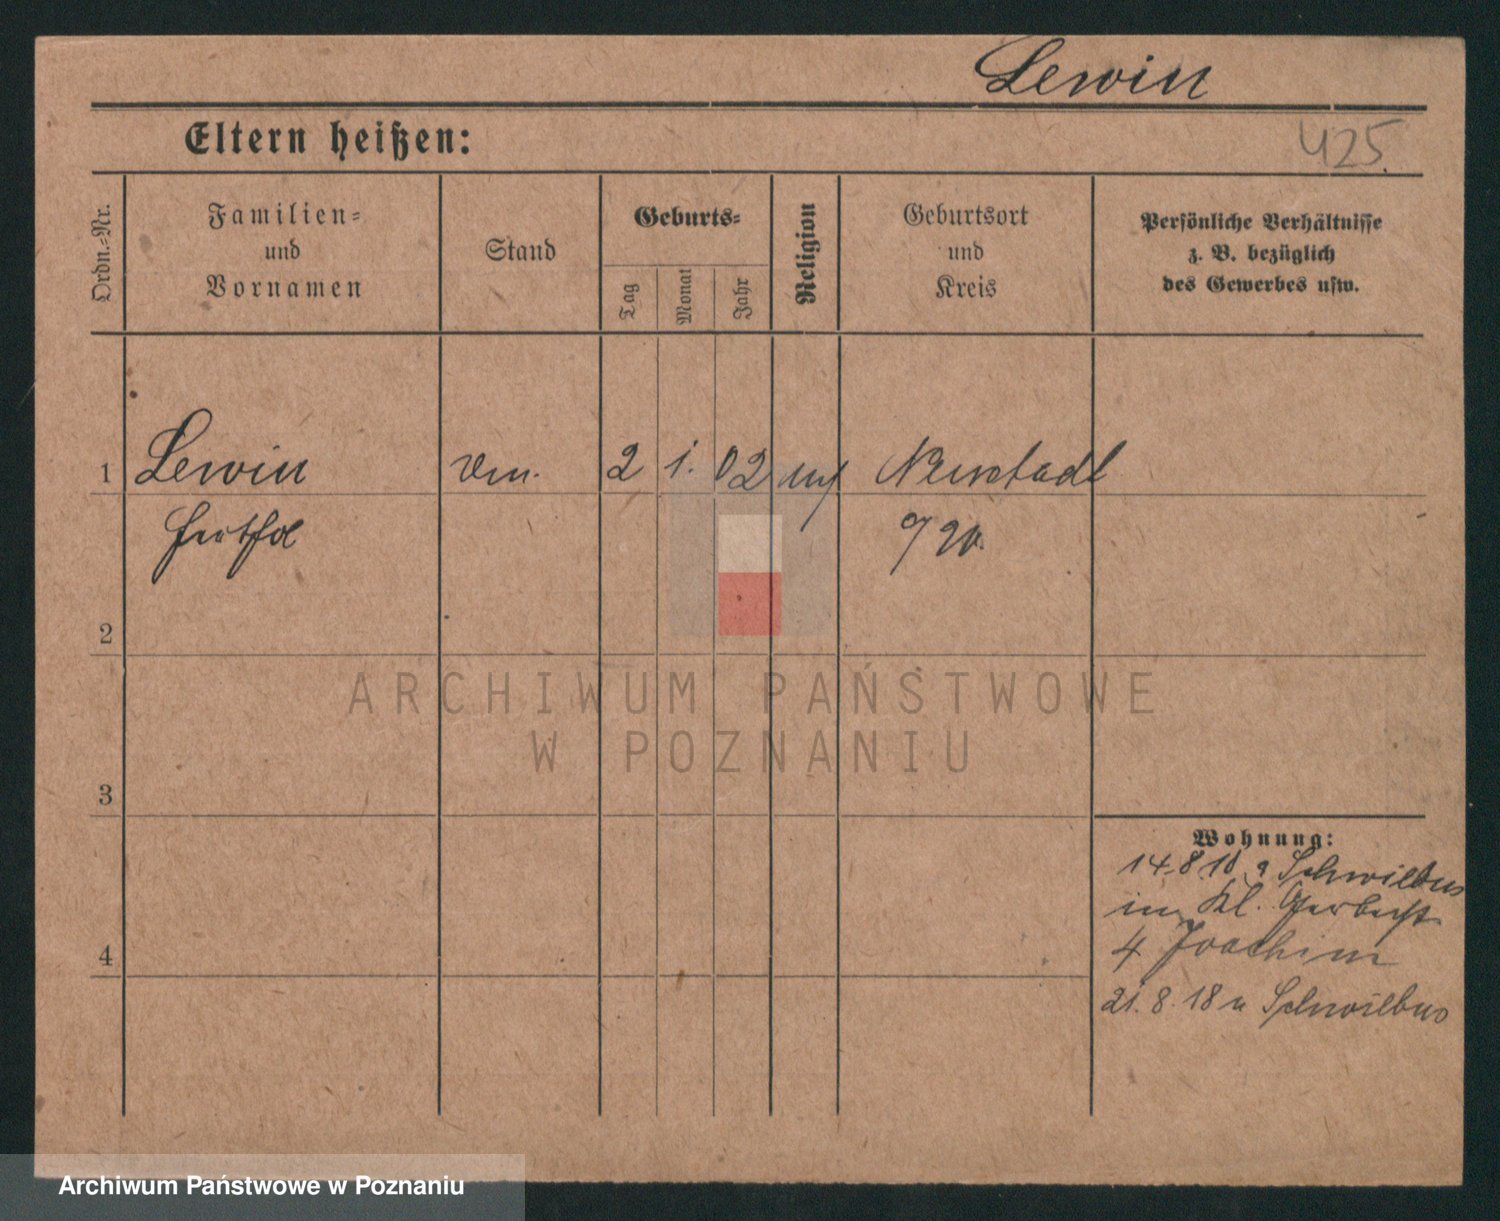 Lewin
Eltern heißen:
425
Ordn.=Nr.
Familien=
und
Vornamen
Stand
Geburts=
Tag
Monat
Jahr
Religion
Geburtsort
und
Kreis
Persönliche Verhältnisse
z. B. bezüglich
des Gewerbes usw.
1 Lewin 2 1. 02 Neustadt
2
3
4
Wohnung:
14.8.18 Schwiebus
im Kl.
4 Joachim
21.8.18 n Schwiebus
ARCHIWUM PAŃSTWOWE
W POZNANIU
Archiwum Państwowe w Poznaniu